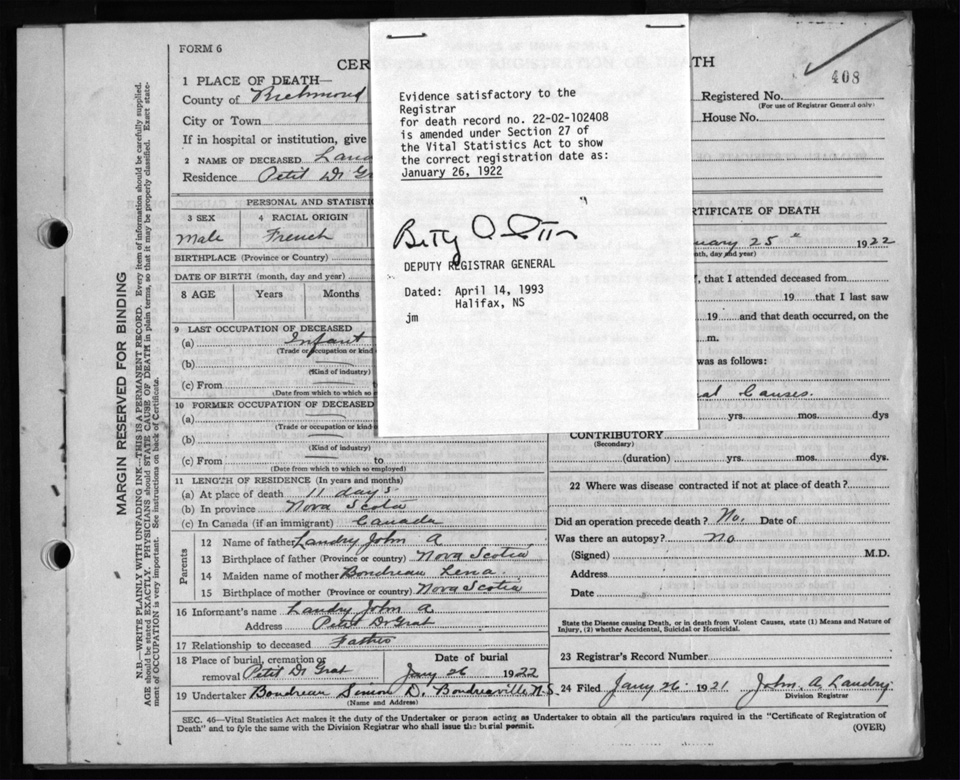 FORM 6
CER TH
408
1 PLACE OF DEATH—
County of Richmond
Registered No.
(For use of Registrar General only)
City or Town
House No.
If in hospital or institution, give
2 NAME OF DECEASED Land
Residence Petit De Gr
PERSONAL AND STATISTIC
RTIFICATE OF DEATH
3 SEX 4 RACIAL ORIGIN
Male French
nuary 25" 1922
nth, day and year)
BIRTHPLACE (Province or Country)
DATE OF BIRTH (month, day and year)
, that I attended deceased from
8 AGE Years Months
19 that I last saw
19 and that death occurred, on the
m.
9 LAST OCCUPATION OF DECEASED
(a) Infant
(Trade or occupation or kind
was as follows:
(b)
(Kind of industry)
(c) From
(Date from which to which so
al Causes.
10 FORMER OCCUPATION OF DECEASED
yrs. mos. dys
(a)
(Trade or occupation or kind
(b)
(Kind of industry)
CONTRIBUTORY
(Secondary)
(c) From to
(Date from which to which so employed)
(duration) yrs. mos. dys.
Evidence satisfactory to the
Registrar
for death record no. 22-02-102408
is amended under Section 27 of
the Vital Statistics Act to show
the correct registration date as:
January 26, 1922
Betty
DEPUTY REGISTRAR GENERAL
Dated: April 14, 1993
Halifax, NS
jm
11 LENGTH OF RESIDENCE (In years and months)
(a) At place of death 11 days
(b) In province Nova Scotia
(c) In Canada (if an immigrant) Canada
22 Where was disease contracted if not at place of death?
Did an operation precede death? No. Date of
Was there an autopsy? no
(Signed) M.D.
Address
Date
Parents
12 Name of father Landry John A
13 Birthplace of father (Province or country) Nova Scotia
14 Maiden name of mother Boudreau Lena.
15 Birthplace of mother (Province or country) Nova Scotia
16 Informant's name Landry John A
Address Petit De Grat
17 Relationship to deceased Father
State the Disease causing Death, or in death from Violent Causes, state (1) Means and Nature of
Injury, (2) whether Accidental, Suicidal or Homicidal.
18 Place of burial, cremation or Date of burial
removal Petit De Grat Jany 26 1922
23 Registrar's Record Number
19 Undertaker Boudreau Simon D. Boudreauville N.S.
(Name and Address)
24 Filed Jany 26 1921 John A Landry
Division Registrar
SEC. 46—Vital Statistics Act makes it the duty of the Undertaker or person acting as Undertaker to obtain all the particulars required in the "Certificate of Registration of
Death" and to fyle the same with the Division Registrar who shall issue the burial permit.
(OVER)
MARGIN RESERVED FOR BINDING
N.B.—WRITE PLAINLY WITH UNFADING INK—THIS IS A PERMANENT RECORD. Every item of information should be carefully supplied.
AGE should be stated EXACTLY. PHYSICIANS should STATE CAUSE OF DEATH in plain terms, so that it may be properly classified. Exact state-
ment of OCCUPATION is very important. See instructions on back of Certificate.